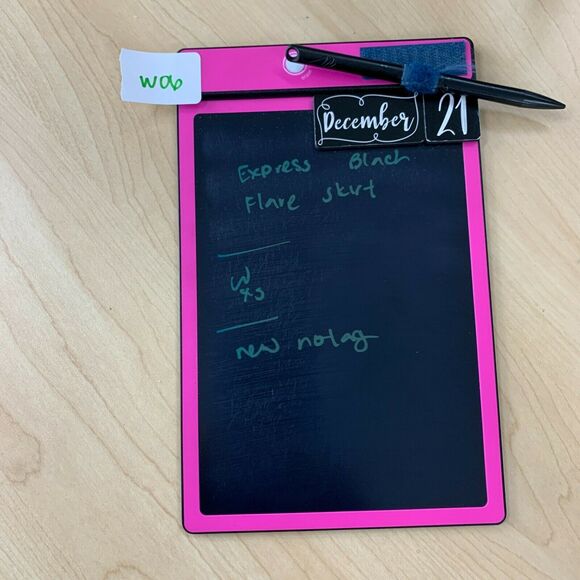 woo
December 21
Express Black
Flare skirt
W
xs
new notag